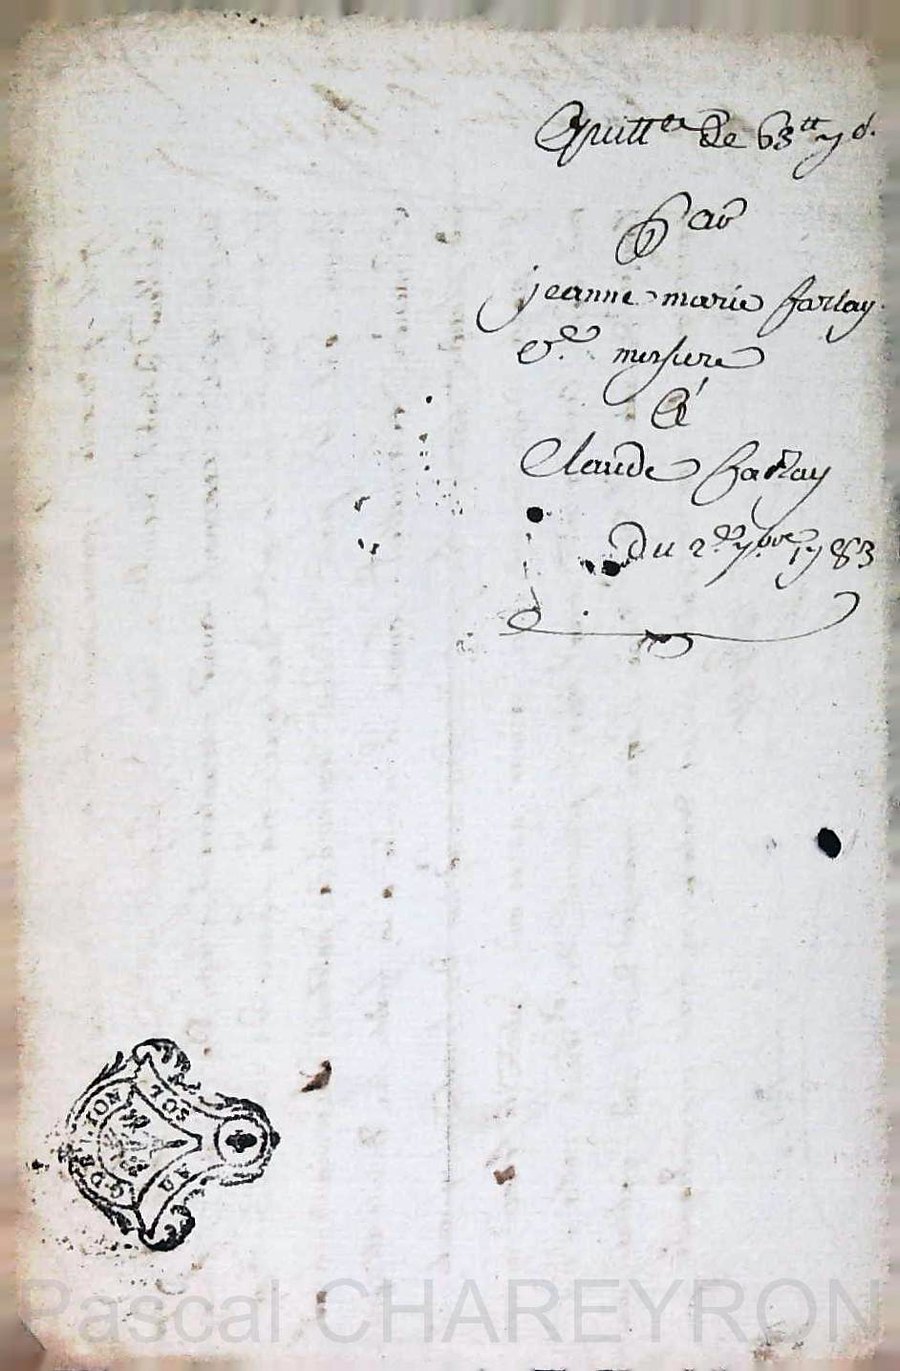 Quitt.ce de 63tt 7 d.
Par
jeanne marie farlay
Ve. messure
A
Claude farlay
Du 2e. 7.bre 1783
G. DE LION
SOL
Pascal CHAREYRON